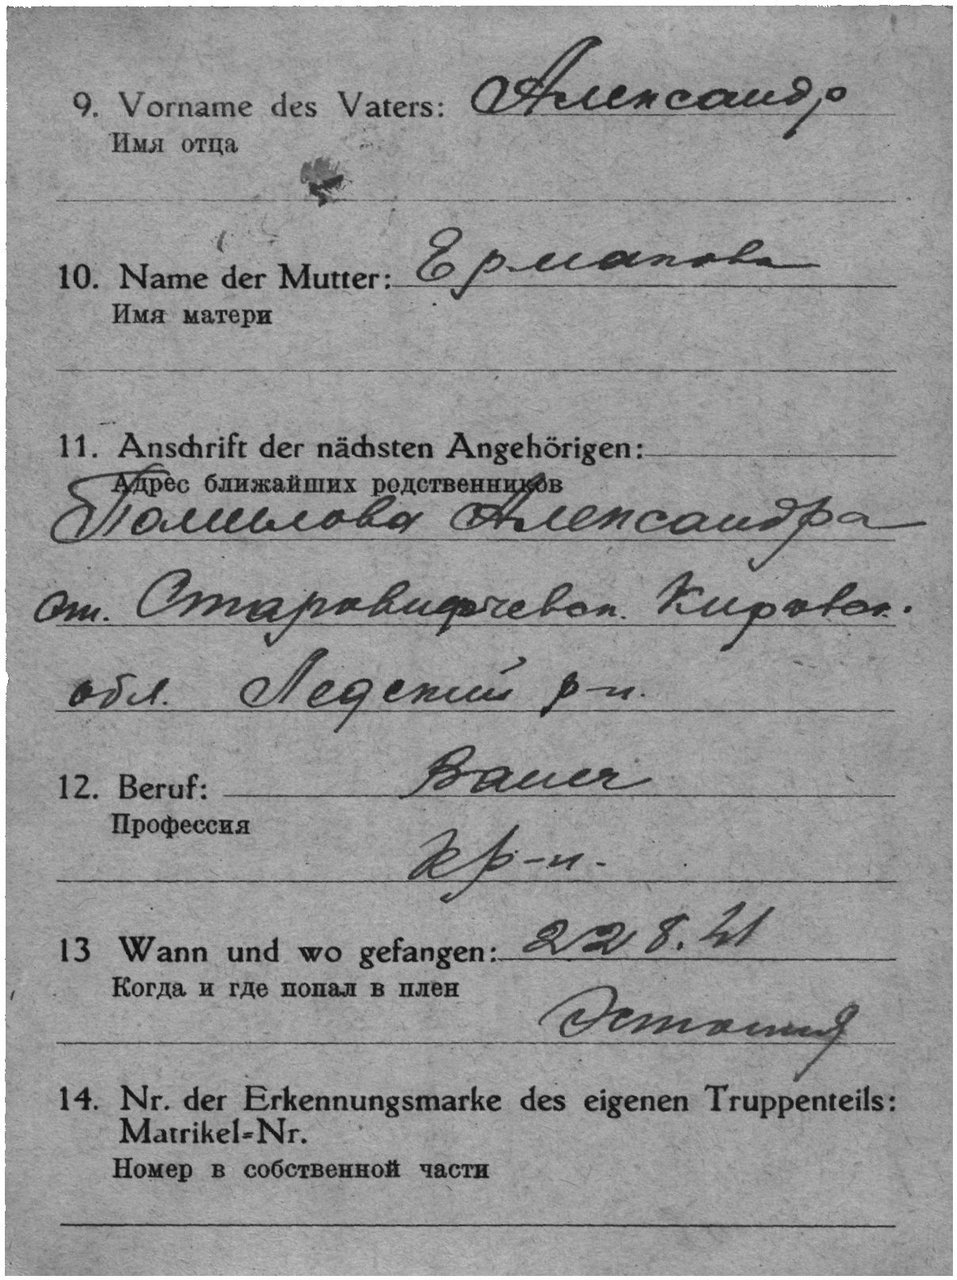 9. Vorname des Vaters: Александр
Имя отца
10. Name der Mutter: Ермакова
Имя матери
11. Anschrift der nächsten Angehörigen:
Адрес ближайших родственников
Помылова Александра
ст. Кировск.
обл. р-н.
12. Beruf: Bauer
Профессия
кр-н.
13 Wann und wo gefangen: 22 8. 41
Когда и где попал в плен
Эстония
14. Nr. der Erkennungsmarke des eigenen Truppenteils:
Matrikel=Nr.
Номер в собственной части